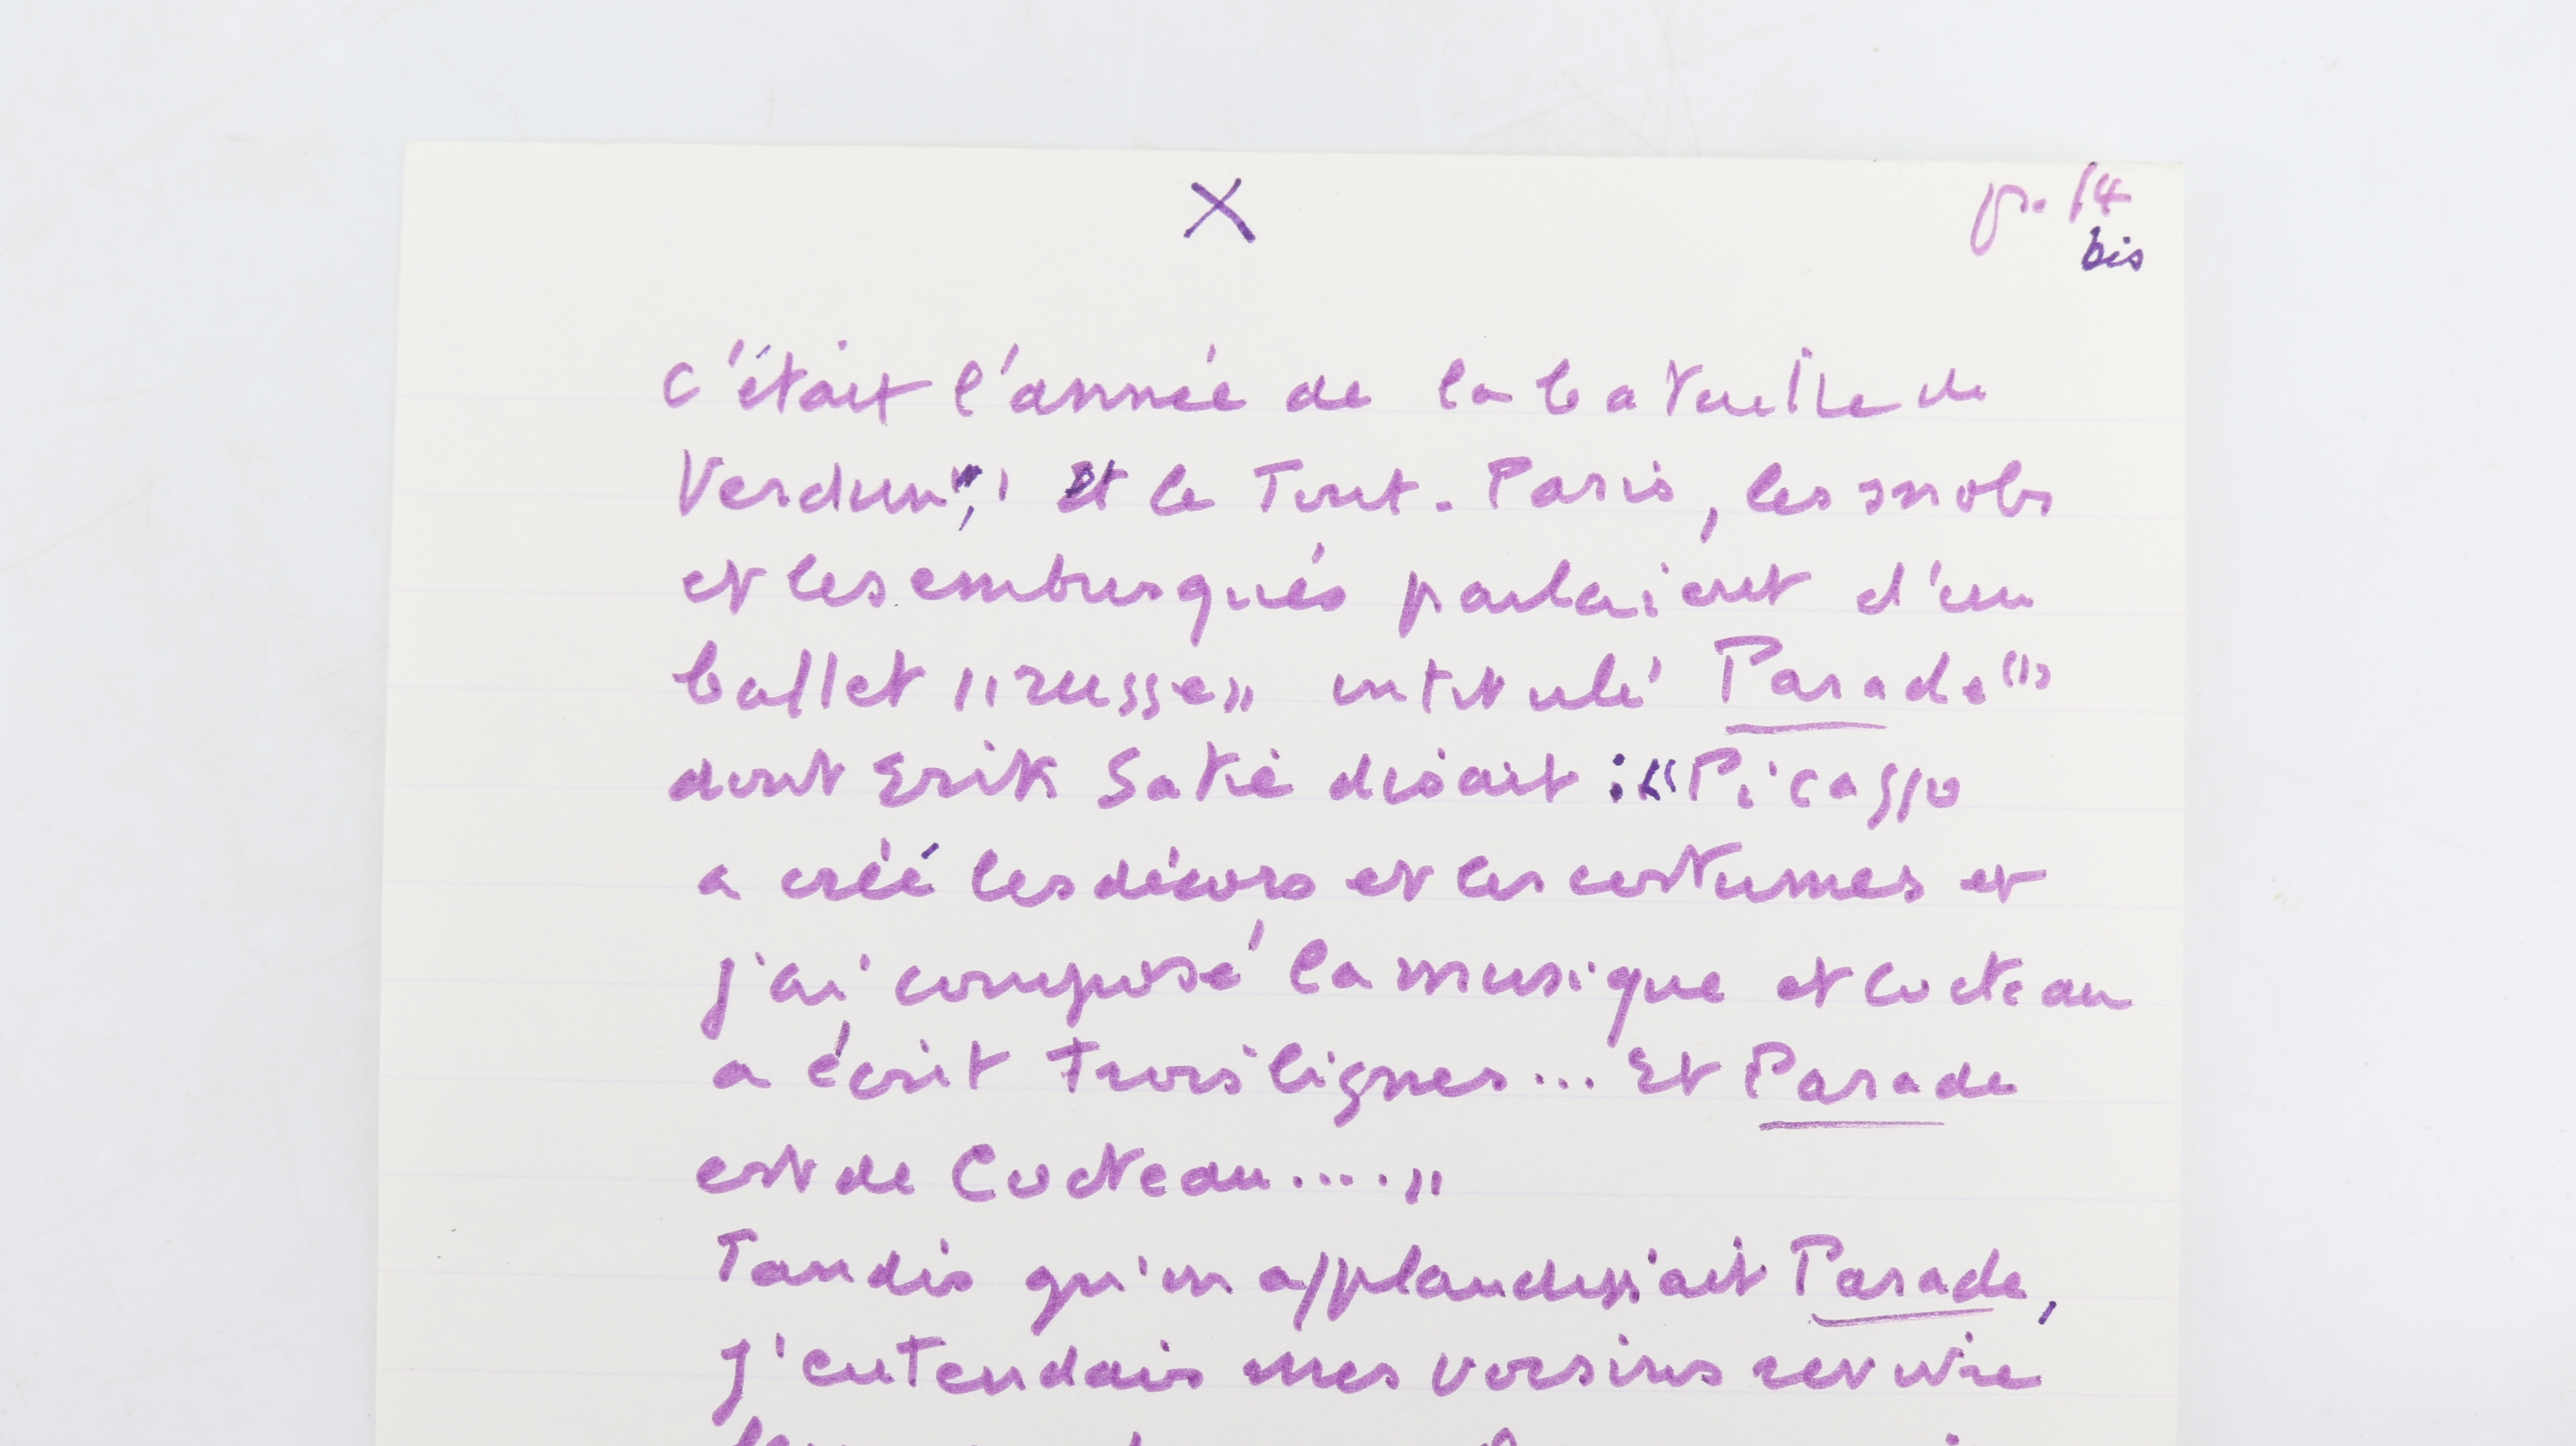 X
p. 14
bis
C'était l'année de la bataille de
Verdun, Et le Tout-Paris, les snobs
et les embusqués parlaient d'un
ballet "russe" intitulé Parade (1)
dont Erik Satie disait : «Picasso
a créé les décors et les costumes et
j'ai composé la musique et Cocteau
a écrit trois lignes... Et Parade
est de Cocteau....."
Tandis qu'on applaudissait Parade,
j'entendais mes voisins revivre